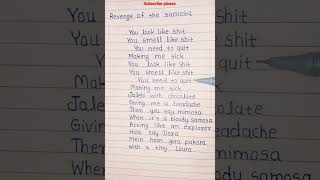 Subscribe please
Revenge of the samosa
You look like shit
You smell like shit
You need to quit
Making me sick
You look like shit
You smell like shit
You need to quit
Making me sick
Jalebi with chocolate
Giving me a headache
Then you say mimosa
When it's a bloody samosa
Acting like an explorer
Hola say Dora
Mein hoon gora pakora
With a tiny Laura